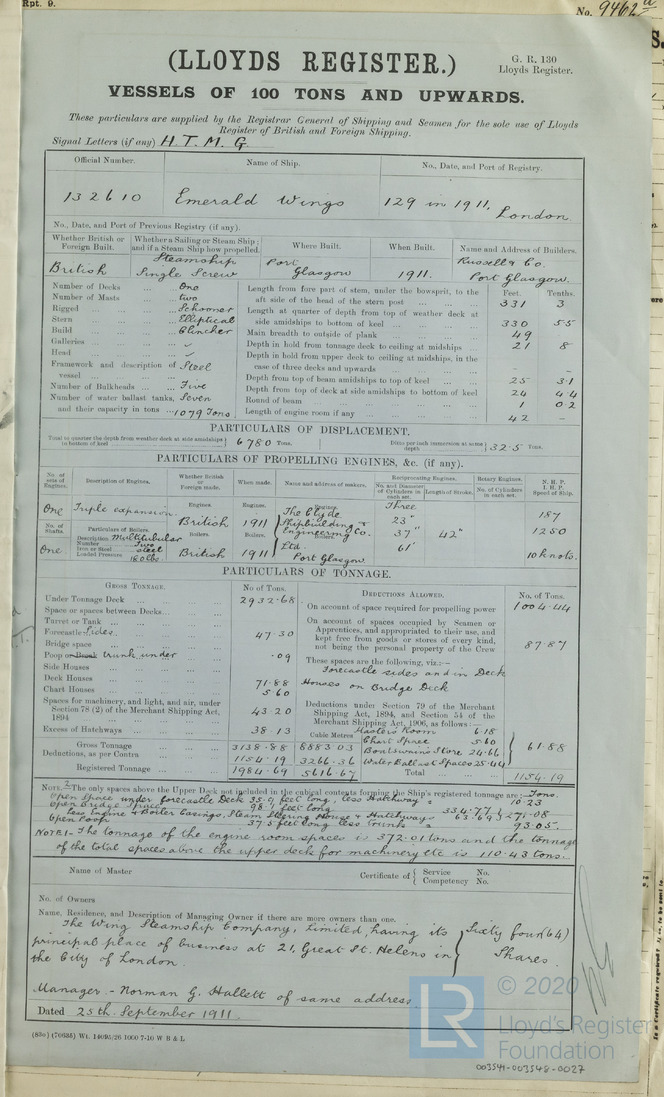 Rpt. 9.
No. 9462a
(LLOYDS REGISTER.)
G. R. 130
Lloyds Register.
VESSELS OF 100 TONS AND UPWARDS.
These particulars are supplied by the Registrar General of Shipping and Seamen for the sole use of Lloyds
Register of British and Foreign Shipping.
Signal Letters (if any) H. T. M. G
Official Number. Name of Ship. No., Date, and Port of Registry.
132610 Emerald Wings 129 in 1911, London
No., Date, and Port of Previous Registry (if any).
Whether British or Foreign Built. Whether a Sailing or Steam Ship; and if a Steam Ship how propelled. Where Built. When Built. Name and Address of Builders.
British Steamship Single Screw Port Glasgow 1911. Russell & Co. Port Glasgow.
Number of Decks One
Number of Masts two
Rigged Schooner
Stern Elliptical
Build Clincher
Galleries
Head
Framework and description of vessel Steel
Number of Bulkheads Five
Number of water ballast tanks, Seven
and their capacity in tons 1079 Tons.
Feet. Tenths.
Length from fore part of stem, under the bowsprit, to the
aft side of the head of the stern post 331 3
Length at quarter of depth from top of weather deck at
side amidships to bottom of keel 330 55
Main breadth to outside of plank 49 -
Depth in hold from tonnage deck to ceiling at midships 21 8
Depth in hold from upper deck to ceiling at midships, in the
case of three decks and upwards -
Depth from top of beam amidships to top of keel 25 31
Depth from top of deck at side amidships to bottom of keel 24 44
Round of beam 1 02
Length of engine room if any 42 -
PARTICULARS OF DISPLACEMENT.
Total to quarter the depth from weather deck at side amidships to bottom of keel 6780 Tons. Ditto per inch immersion at same depth 32.5 Tons.
PARTICULARS OF PROPELLING ENGINES, &c. (if any).
No. of sets of Engines. Description of Engines. Whether British or Foreign made. When made. Name and address of makers. Reciprocating Engines. Rotary Engines. N.H.P. I.H.P. Speed of Ship.
No. and Diameter of Cylinders in each set. Length of Stroke. No. of Cylinders in each set.
One Triple expansion. Engines. British Engines. 1911 Engines. The Clyde Shipbuilding & Engineering Co. Ltd. Port Glasgow Three 23" 37" 61" 42" 187 1250
No. of Shafts. Particulars of Boilers. Boilers. Boilers. Boilers.
One Description Multitubular Number Two Iron or Steel steel Loaded Pressure 180 lbs. British 1911 10 knots.
PARTICULARS OF TONNAGE.
GROSS TONNAGE. No. of Tons.
Under Tonnage Deck 2932.68
Space or spaces between Decks
Turret or Tank
Forecastle Sides. 47.30
Bridge space
Poop or Break trunk under .09
Side Houses
Deck Houses 71.88
Chart Houses 5.60
Spaces for machinery, and light, and air, under
Section 78 (2) of the Merchant Shipping Act,
1894 43.20
Excess of Hatchways 38.13
Cubic Metres
Gross Tonnage 3138.88 8883.03
Deductions, as per Contra 1154.19 3266.36
Registered Tonnage 1984.69 5616.67
DEDUCTIONS ALLOWED. No. of Tons.
On account of space required for propelling power 1004.44
On account of spaces occupied by Seamen or
Apprentices, and appropriated to their use, and
kept free from goods or stores of every kind,
not being the personal property of the Crew 87.87
These spaces are the following, viz.:—
Forecastle sides and in Deck
Houses on Bridge Deck
Deductions under Section 79 of the Merchant
Shipping Act, 1894, and Section 54 of the
Merchant Shipping Act, 1906, as follows:—
Master's Room 6.18
Chart Space 5.60
Boatswain's Store 24.66
Water Ballast Spaces 25.44
61.88
Total 1154.19
NOTE 2.—The only spaces above the Upper Deck not included in the cubical contents forming the Ship's registered tonnage are:— Tons.
Open Space under forecastle Deck 35.9 feet long, less Hatchway = 10.23
Open Bridge Space 98.7 feet long 334.77
less Engine & Boiler Casings, Steam Steering House & Hatchways 63.69 = 271.08
Open Poop 37.5 feet long less trunk = 93.05
NOTE 1.- The tonnage of the engine room spaces is 372.01 tons and the tonnage
of the total spaces above the upper deck for machinery etc is 110.43 tons.
Name of Master Certificate of Service No. Competency No.
No. of Owners
Name, Residence, and Description of Managing Owner if there are more owners than one.
The Wing Steamship Company, Limited, having its
principal place of business at 21, Great St. Helens in
the City of London
Sixty four (64)
Shares.
Manager - Norman G. Hallett of same address.
Dated 25th September 1911.
(830) (70635) Wt. 14095/26 1000 7-10 W B & L
LR
© 2020
Lloyd's Register
Foundation
003541-003548-0027